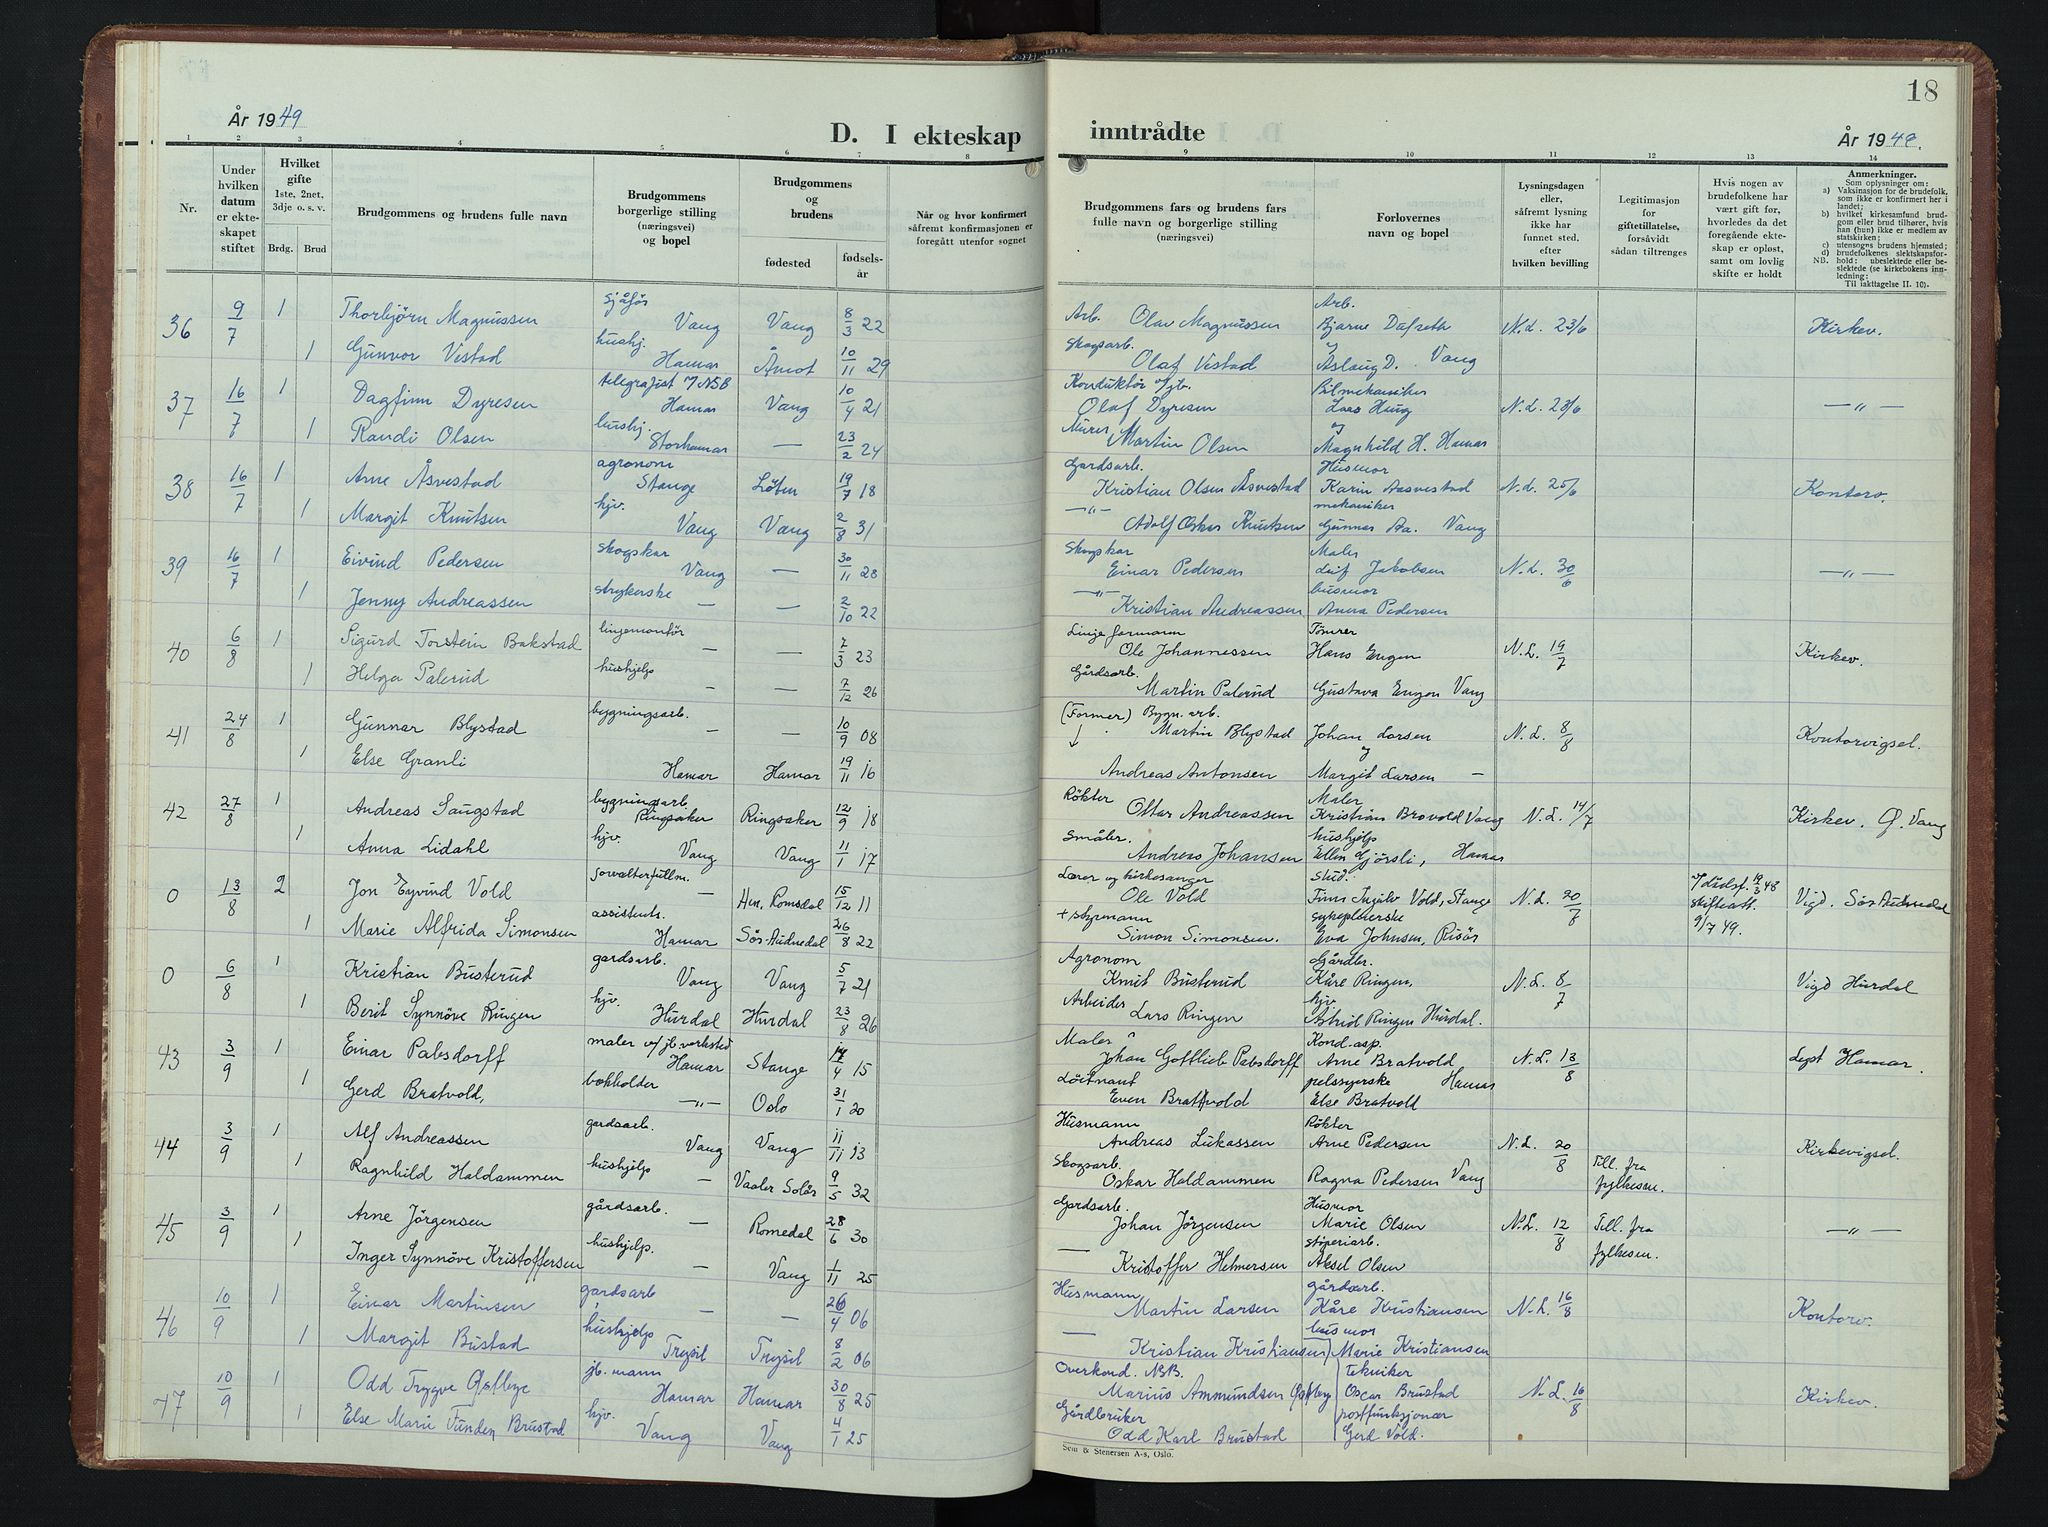 18
År 1949
År 1949.
D. I ekteskap inntrådte
1 2 3 4 5 6 7 8 9 10 11 12 13 14
Nr.
Under hvilken datum er ekteskapet stiftet
Hvilket gifte
1ste, 2net, 3dje o. s. v.
Brdg. Brud
Brudgommens og brudens fulle navn
Brudgommens borgerlige stilling (næringsvei) og bopel
Brudgommens og brudens
fødested fødselsår
Når og hvor konfirmert såfremt konfirmasjonen er foregått utenfor sognet
Brudgommens fars og brudens fars fulle navn og borgerlige stilling (næringsvei)
Forlovernes navn og bopel
Lysningsdagen eller, såfremt lysning ikke har funnet sted, efter hvilken bevilling
Legitimasjon for giftetillatelse, forsåvidt sådan tiltrenges
Hvis nogen av brudefolkene har vært gift før, hvorledes da det foregående ekteskap er opløst, samt om lovlig skifte er holdt
Anmerkninger.
Som oplysninger om:
a) Vaksinasjon for de brudefolk, som ikke er konfirmert her i landet;
b) hvilket kirkesamfund brudgom eller brud tilhører, hvis han (hun) ikke er medlem av statskirken;
c) utensogns brudens hjemsted;
d) brudefolkenes slektskapsforhold: ubeslektede eller beslektede (se kirkebokens innledning;
NB. Til iakttagelse II. 10).
36 9/7 1 Thorbjørn Magnussen sjåför Vang Vang 8/3 22 Arb. Olav Magnussen Arb. Bjarne Dafseth N.L. 23/6 Kirkev.
1 Gunvor Vestad hushj. Hamar Åmot 10/11 29 Skogsarb. Olaf Vestad og Aslaug D. Vang
37 16/7 1 Dagfinn Dyresen telegrafist v/ NSB Hamar Vang 10/4 21 Konduktör v/jb. Olaf Dyresen Bilmekaniker Lars Haug N.L. 23/6 — " —
1 Randi Olsen hushj. Storhamar — 23/2 24 Murer Martin Olsen og Magnhild H. Hamar
38 16/7 1 Arne Åsvestad agronom Stange Löten 19/7 18 Gardsarb. Kristian Olsen Åsvestad Husmor Karin Aasvestad N.L. 25/6 Kontorv.
1 Margit Knutsen hjv. Vang Vang 2/8 31 — " — Adolf Oskar Knutsen mekaniker Gunnar Aa. Vang
39 16/7 1 Eivind Pedersen skogskar Vang — 30/11 28 Skogskar Einar Pedersen Maler Leif Jakobsen N.L. 30/6 — " —
1 Jenny Andreassen strykerske — — 2/10 22 — " — Kristian Andreassen husmor Anna Pedersen
40 6/8 1 Sigurd Torstein Bakstad linjemontör — — 7/3 23 Linjeformann Ole Johannessen Tömrer Hans Engen N.L. 19/7 Kirkev.
1 Helga Palerud hushjelp — — 7/12 26 Gårdsarb. Martin Palerud Gustava Engen Vang
41 24/8 1 Gunnar Blystad bygningsarb. — — 10/9 08 (Former) Bygn. arb. Martin Blystad Johan Larsen N.L. 8/8 Kontorvigsel.
1 Else Granli Hamar Hamar 19/11 16 Andreas Antonsen og Margit Larsen —
42 27/8 1 Andreas Saugstad bygningsarb. Ringsaker Ringsaker 12/9 18 Røkter Ottar Andreassen Maler Kristian Brovold Vang N.L. 14/7 Kirkev. Ø. Vang
1 Anna Lidahl hjv. Vang Vang 11/1 17 Småbr. Andreas Johansen hushjelp Ellen Gjörsli, Hamar
0 13/8 2 Jon Eyvind Vold forvalterfullm. — Hen, Romsdal 15/12 11 Lærer og kirkesanger Ole Vold Stud. Finn Ingolv Vold, Stange N.L. 20/7 v/dödsf. 19/3 48 skifteatt. 9/7 49. Vigd. Sör-Audnedal
1 Marie Alfrida Simonsen assistent. Hamar Sör-Audnedal 26/8 22 + styrmann Simon Simonsen. sykepleierske Eva Johnsen, Risör
0 6/8 1 Kristian Busterud gardsarb. Vang Vang 5/7 21 Agronom Knut Busterud Gårdbr. Kåre Ringen, N.L. 8/7 Vigd Hurdal
1 Berit Synnöve Ringen hjv. Hurdal Hurdal 23/8 26 Arbeider Lars Ringen hjv Astrid Ringen Hurdal.
43 3/9 1 Einar Pabsdorff maler v/ jb. verksted Hamar Stange 14/4 15 Maler Johan Gottlieb Pabsdorff Kond. asp. Arne Bratvold N.L. 13/8 Lyst Hamar.
1 Gerd Bratvold, bokholder — " — Oslo 31/1 20 Löitnant Even Bratvold pelssyerske Hamar Else Bratvold
44 3/9 1 Alf Andreassen gardsarb. Vang Vang 11/11 13 Husmann Andreas Lukassen Røkter Arne Pedersen N.L. 20/8 Till. fra fylkesm. Kirkevigsel.
1 Ragnhild Haldammen hushjelp — Vaaler Solör 9/5 32 Skogsarb. Oskar Haldammen Ragna Pedersen Vang
45 3/9 1 Arne Jörgensen gårdsarb. — Romedal 28/6 30 Gardsarb. Johan Jörgensen Husmor Marie Olsen N.L. 12/8 Till. fra fylkesm. — " —
1 Inger Synnöve Kristoffersen hushjelp. — Vang 1/11 25 — Kristoffer Helmersen støperiarb. Aksel Olsen
46 10/9 1 Einar Martinsen gardsarb — — 26/4 06 Husmann Martin Larsen gårdsarb. Kåre Kristiansen N.L. 16/8 Kontorv.
1 Margit Bustad hushjelp Trysil Trysil 8/2 06 — Kristian Kristiansen husmor Marie Kristiansen
47 10/9 1 Odd Trygve Østbye jb. mann Hamar Hamar 30/8 25 Overkond. NSB. Marius Ammundsen Østbye Tekniker Oscar Brustad N.L. 16/8 Kirkev.
1 Else Marie Funden Brustad hjv. Vang Vang 4/1 25 Gårdbruker Odd Karl Brustad postfunksjonær Gerd Vold.
Sem & Stenersen A-s, Oslo.